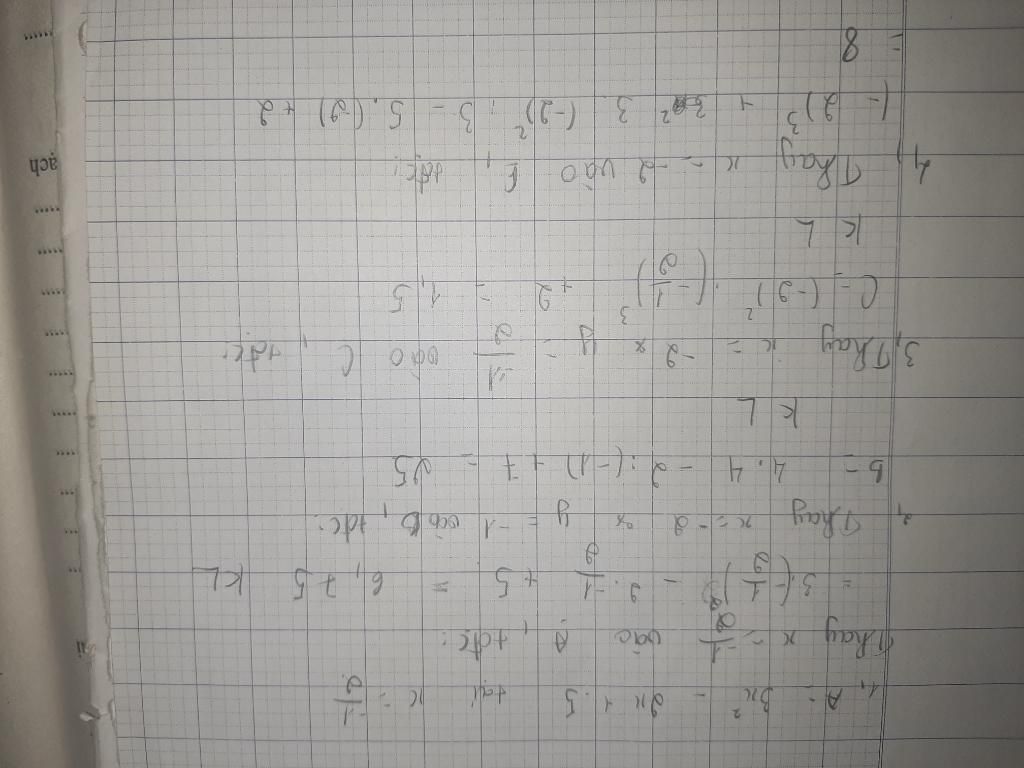 1, A = 3x² - 2x + 5 tại x = -1/2
Thay x = -1/2 vào A, tđc:
= 3.(-1/2)² - 2. -1/2 + 5 = 6,75 KL
2, Thay x = -2 x y = -1 vào B, tđc:
B = 4.4 - 2.(-1) + 7 = 25
KL
3, Thay x = -2 x y = -1/2 vào C, tđc:
C = (-2)² . (-1/2)³ + 2 = 1,5
KL
4, Thay x = -2 vào E, tđc:
(-2)³ + 3. (-2)² : 3 - 5. (-2) + 2
= 8
ạch